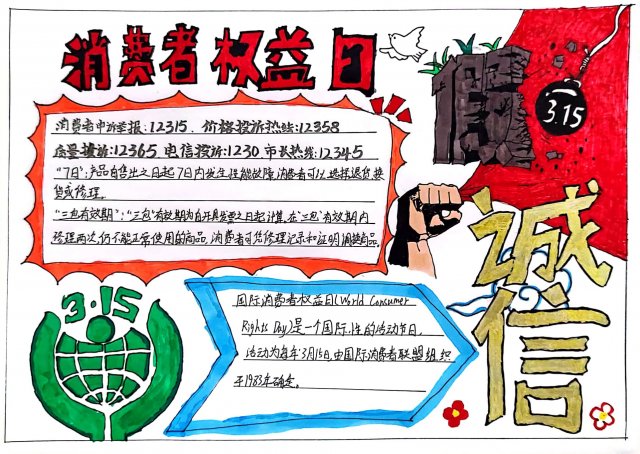 消费者权益日
消费者申诉举报:12315、价格投诉热线:12358
质量投诉:12365、电信投诉:1230、市长热线:12345
“7日”:产品自售出之日起7日内发生性能故障,消费者可以选择退货、换
货或修理。
“三包有效期”:“三包”有效期为自开具发票之日起计算,在“三包”有效期内
修理两次,仍不能正常使用的商品,消费者可凭修理记录和证明调换商品。
假
3.15
诚
信
3·15
国际消费者权益日(World Consumer
Rights Day)是一个国际性的活动节日,
活动为每年3月15日,由国际消费者联盟组织
于1983年确定。